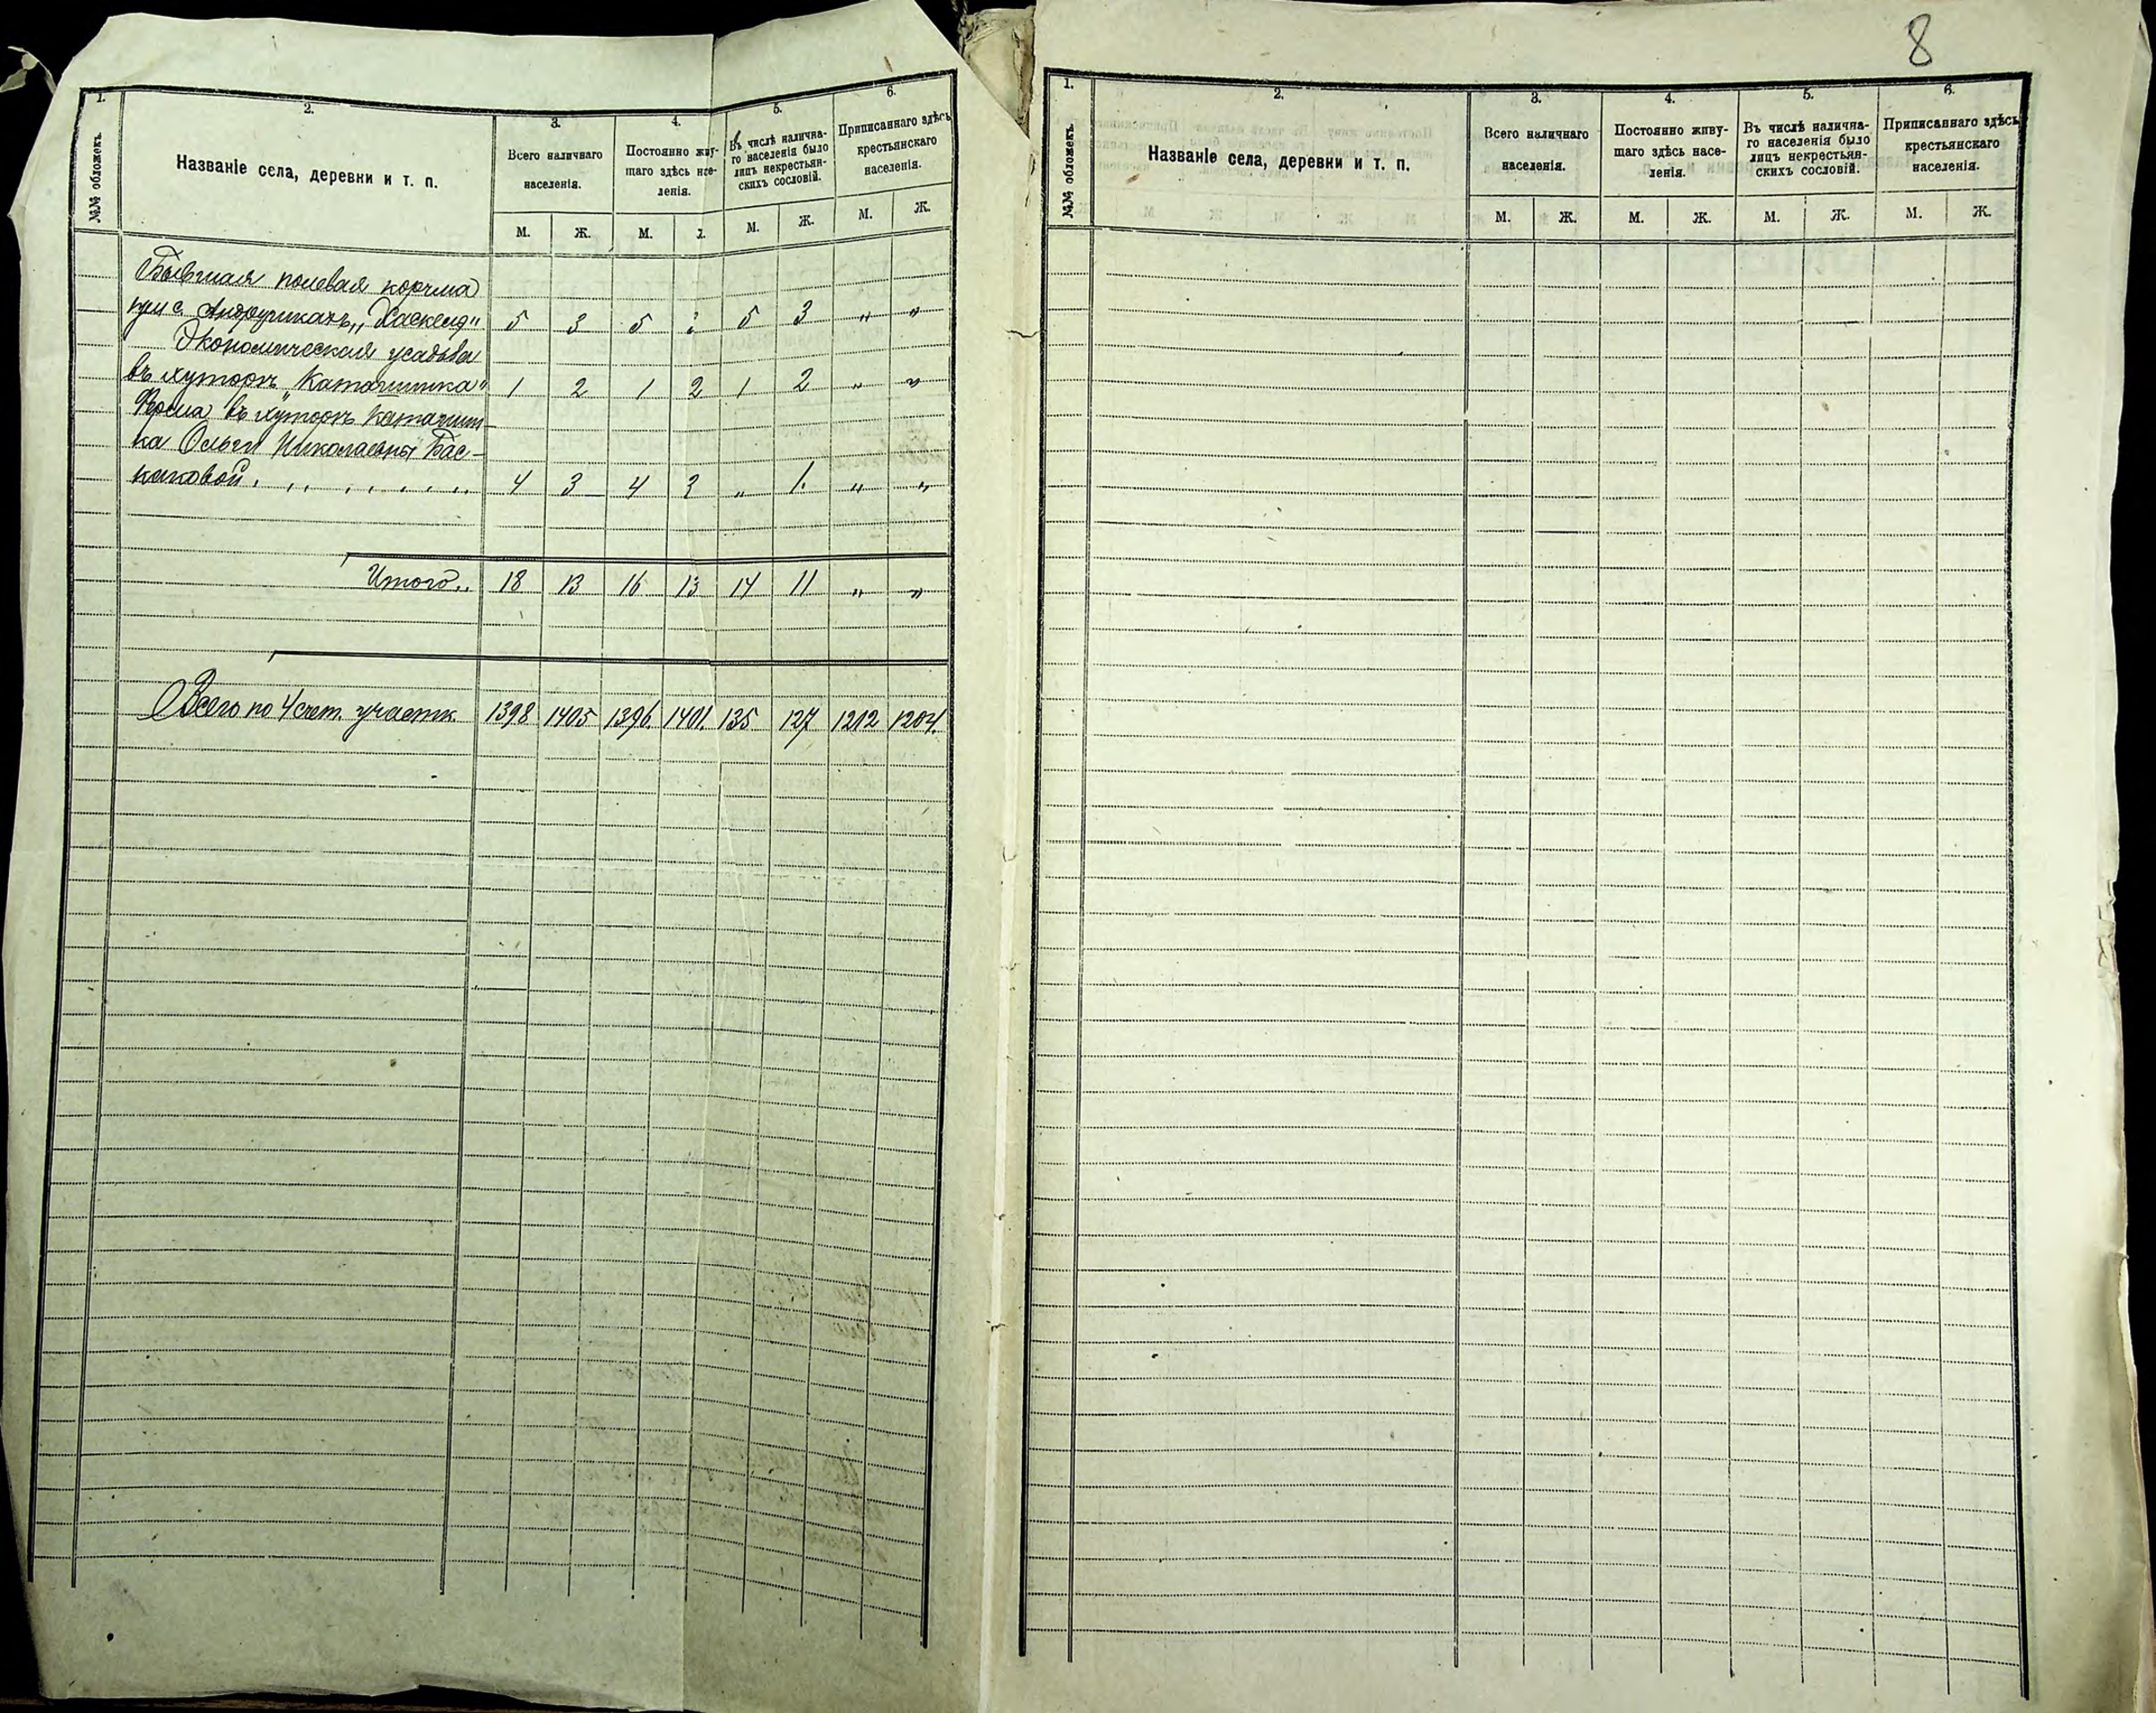 1.
2.
3.
4.
5.
6.
№№ обложекъ.
Названіе села, деревни и т. п.
Всего наличнаго
населенія.
Постоянно жву-
щаго здѣсь нсе-
ленія.
Въ числѣ налична-
го населенія было
лицъ некрестьян-
скихъ сословій.
Приписаннаго здѣсь
крестьянскаго
населенія.
М. Ж. М. М. Ж. М. Ж.
Бывшая полевая корчма
при с.
5 3 5 5 3 " "
Экономическая усадьба
въ хуторѣ "Каташинка" 1 2 1 2 1 2 " "
Ферма въ хуторѣ Каташин-
ка Ольги Николаевны Бас-
каковой . . . . . . . . . 4 3 4 3 " 1. " "
Итого.. 18 13 16 13 14 11 " "
Всего по 4 счет. участк. 1398 1405 1396. 1401. 135 127 1212 1204.
8
1.
2.
3.
4.
5.
6.
№№ обложекъ.
Названіе села, деревни и т. п.
Всего наличнаго
населенія.
Постоянно живу-
щаго здѣсь насе-
ленія.
Въ числѣ налична-
го населенія было
лицъ некрестьян-
скихъ сословій.
Приписаннаго здѣсь
крестьянскаго
населенія.
М. Ж. М. Ж. М. Ж. М. Ж.